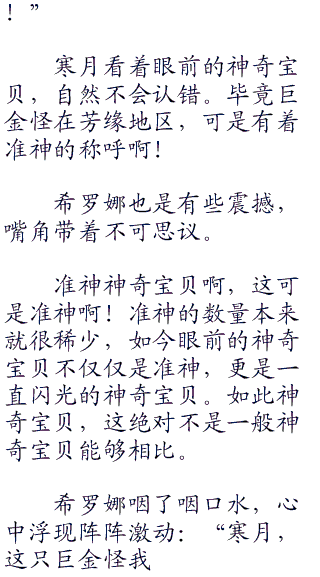 ！”
寒月看着眼前的神奇宝
贝，自然不会认错。毕竟巨
金怪在芳缘地区，可是有着
准神的称呼啊！
希罗娜也是有些震撼，
嘴角带着不可思议。
准神神奇宝贝啊，这可
是准神啊！准神的数量本来
就很稀少，如今眼前的神奇
宝贝不仅仅是准神，更是一
直闪光的神奇宝贝。如此神
奇宝贝，这绝对不是一般神
奇宝贝能够相比。
希罗娜咽了咽口水，心
中浮现阵阵激动：“寒月，
这只巨金怪我